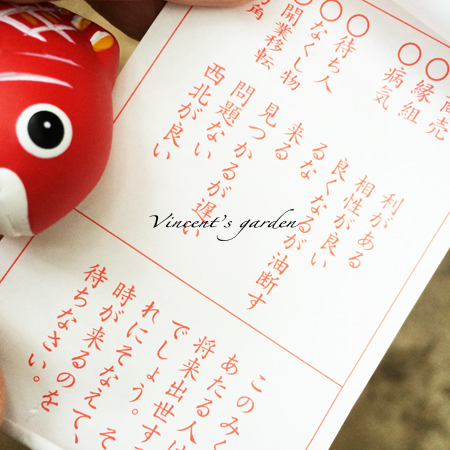 商売 利がある
○縁組 相性が良い
○病気 良くなるが油断す
るな
○待ち人 来る
○なくし物 見つかるが遅い
○開業移転 問題ない
角 西北が良い
このみく
あたる人は
将来出世す
でしょう。そ
れにそなえて、
時が来るのを
待ちなさい。
Vincent's garden